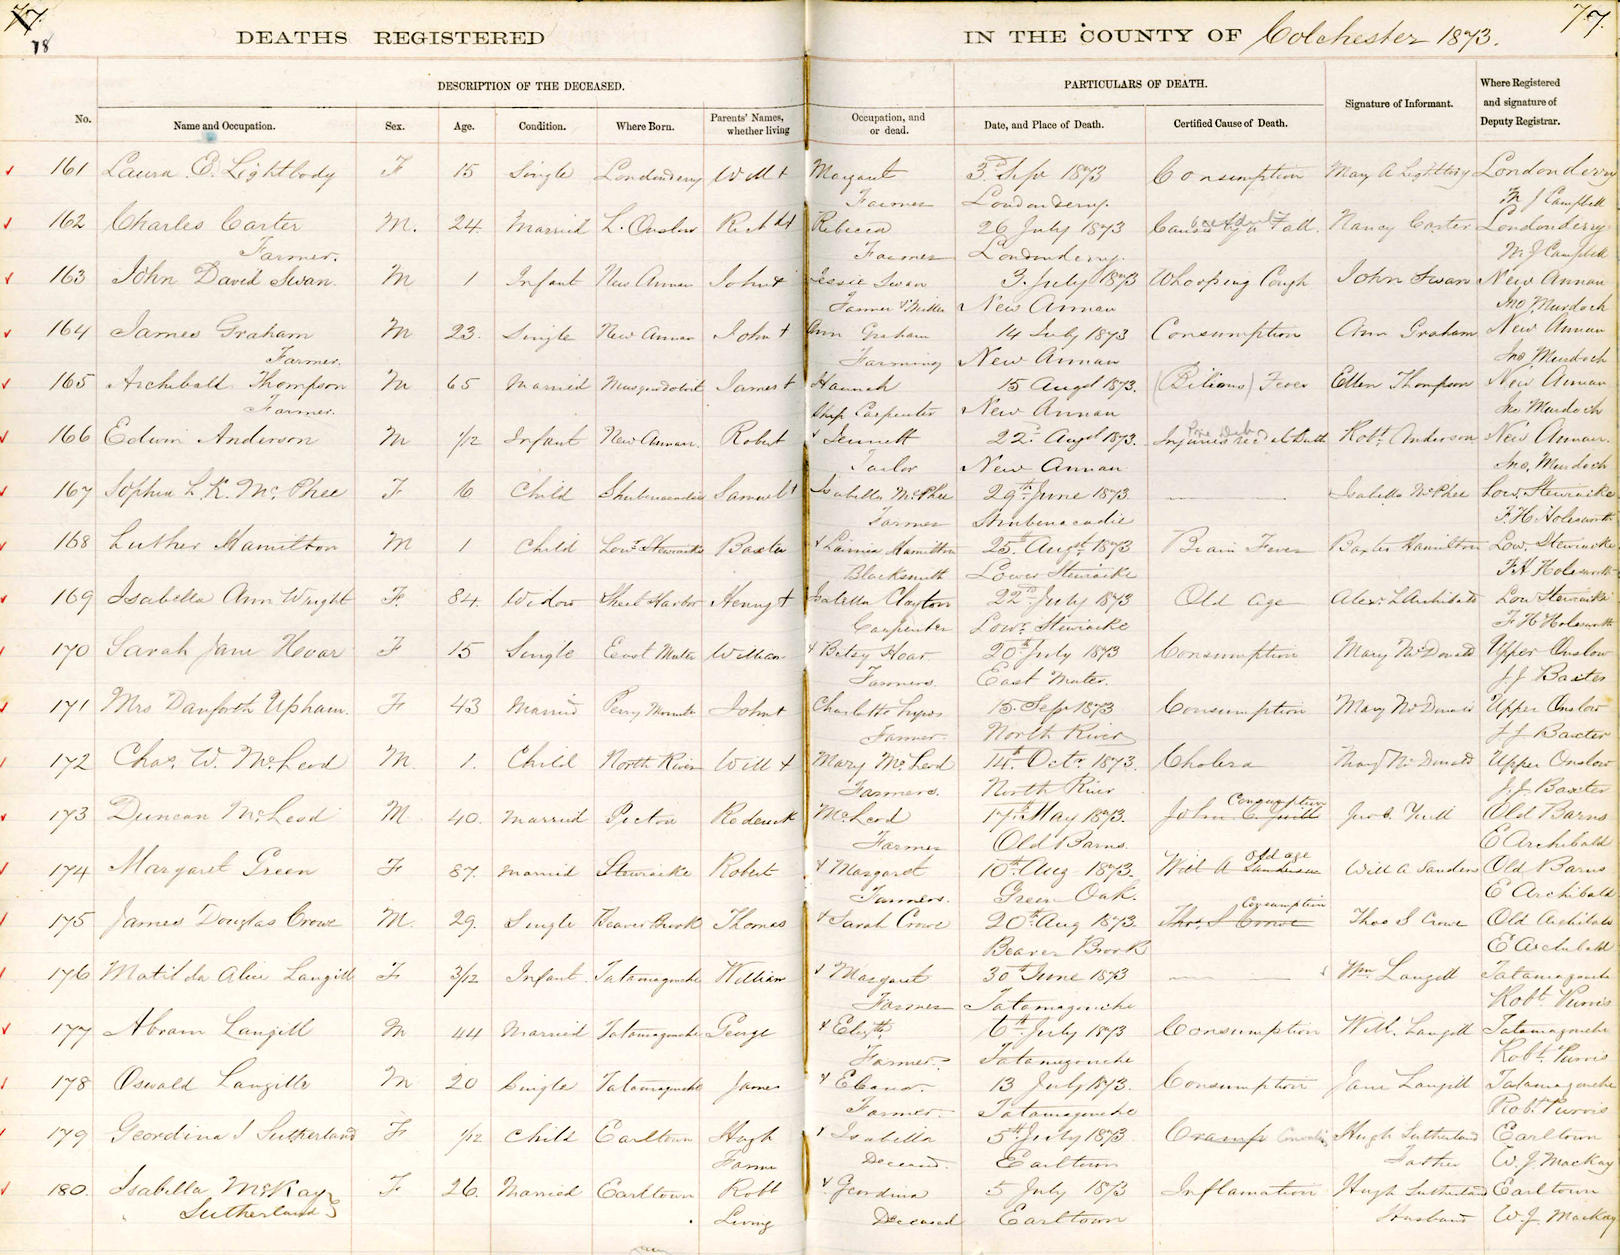 77.
78
DEATHS REGISTERED IN THE COUNTY OF Colchester 1873.
77.
DESCRIPTION OF THE DECEASED. PARTICULARS OF DEATH.
No. Name and Occupation. Sex. Age. Condition. Where Born. Parents' Names, whether living Occupation, and or dead. Date, and Place of Death. Certified Cause of Death. Signature of Informant. Where Registered and signature of Deputy Registrar.
161 Laura E. Lightbody F 15 Single Londonderry Will + Margaret 3 Sept 1873 Consumption Mary A Lightbody Londonderry
Farmer Londonderry. M J Campbell
162 Charles Carter M. 24. Married L. Onslow Richd + Rebecca 26 July 1873 Caused by a Fall. Nancy Carter Londonderry
Farmer. Farmer Londonderry. M. J Campbell
163 John David Swan M 1 Infant New Annan John + Jessie Swan 3 July 1873 Whooping Cough John Swan New Annan
Farmer & Miller New Annan Jno Murdoch
164 James Graham M 23. Single New Annan John + Ann Graham 14 July 1873 Consumption Ann Graham New Annan
Farmer. Farming New Annan Jno Murdoch
165 Archibald Thompson M 65 Married Musquodoboit James + Hannah 15 Augst 1873. (Bilious) Fever Ellen Thompson New Annan
Farmer. Ship Carpenter New Annan Jno Murdoch
166 Edwin Anderson M 1/12 Infant New Annan. Robert + Jennett 22d Augst 1873. Injuries rec'd at Birth Robt. Anderson New Annan.
Tailor New Annan Jno. Murdoch
167 Sophia L. K. McPhee F 6 Child Shubenacadie Samuel + Isabella McPhee 29th June 1873 Isabella McPhee Low. Stewiacke
Farmer Shubenacadie F. H. Holesworth
168 Luther Hamilton M 1 Child Lowr Stewiacke Baxter + Lavinia Hamilton 25th Augst 1873 Brain Fever Baxter Hamilton Low. Stewiacke
Blacksmith Lower Stewiacke F. H Holesworth
169 Isabella Ann Wright F. 84. Widow Sheet Harbor Henry + Isabella Clayton 22nd July 1873 Old age Alex. L Archibald Low Stewiacke
Carpenter Lowr. Stewiacke F H Holesworth
170 Sarah Jane Hoar F 15 Single East Mutter William + Betsy Hoar 20th July 1873 Consumption Mary McDonald Upper Onslow
Farmers. East Mutter. J J Baxter
171 Mrs Danforth Upham. F 43 Married John + Charlotte 15. Sep 1873 Consumption Mary McDonald Upper Onslow
Farmer. North River J J Baxter
172 Chas. W. McLeod M. 1. Child North River Will + Mary McLeod 14th Octr. 1873. Cholera Mary McDonald Upper Onslow
Farmers. North River J. J. Baxter
173 Duncan McLeod M. 40. Married Pictou Roderick McLeod 17th May 1873. John C. Yuill Consumption Jno. C. Yuill Old Barns
Farmer Old Barns. E Archibald
174 Margaret Green F 87. Married Stewiacke Robert + Margaret 10th Aug 1873. Will A Sanderson old age Will A Sanders Old Barns
Farmers. Green Oak. E Archibald
175 James Douglas Crowe M. 29. Single Beaver Brook Thomas + Sarah Crowe 20th Aug 1873. Thos. S Crowe Consumption Thos S Crowe Old
Beaver Brook E Archibald
176 Matilda Alice Langill F 3/12 Infant Tatamagouche William + Margaret 30th June 1873 Wm Langill Tatamagouche
Farmer Tatamagouche Robt. Purvis
177 Abram Langill M 44 Married Tatamagouche George + Elizth. 6th July 1873 Consumption Will. Langill Tatamagouche
Farmer. Tatamagouche Robt. Purvis
178 Oswald Langille M 20 Single Tatamagouche James + 13 July 1873. Consumption Jane Langill Tatamagouche
Farmer. Tatamagouche Robt. Purvis
179 Geordina I Sutherland F 1/12 Child Earltown Hugh + Isabella 5th July 1873. Cramp Hugh Sutherland Earltown
Farmer Deceased. Earltown Father W. J. MacKay
180. Isabella McKay F 26. Married Earltown Robt + Geordina 5 July 1873 Inflamation Hugh Sutherland Earltown
Sutherland Living Deceased Earltown Husband W. J. MacKay